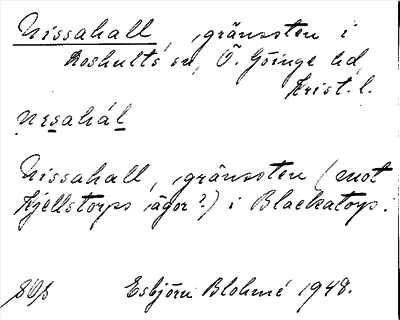 Nissahall, gränssten i
Roshults sn, Ö. Göinge hd,
Krist. l.
nesahál
Nissahall, gränssten (mot
Kjellstorps ägor?) i Blackatorp.
Esbjörn Blohmé 1948.